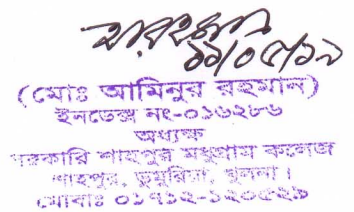 ১১/০৫/১৯
(মোঃ আমিনুর রহমান)
ইনডেক্স নং-০১৬২৮৬
অধ্যক্ষ
সরকারি শাহপুর মধুগ্রাম কলেজ
শাহপুর, ডুমুরিয়া, খুলনা।
মোবাঃ ০১৭১২-১২০৫২৯